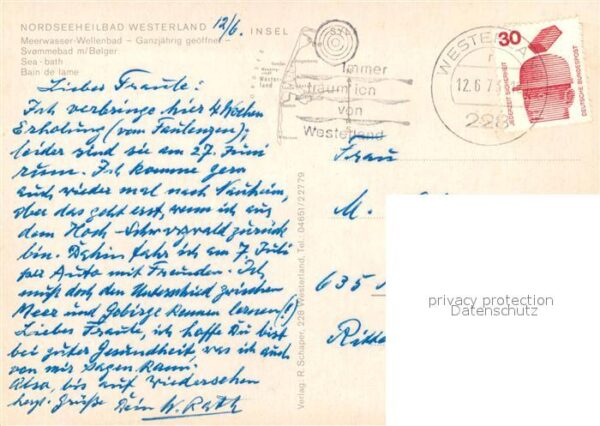 NORDSEEHEILBAD WESTERLAND
INSEL SYLT
Meerwasser-Wellenbad – Ganzjährig geöffnet –
Svømmebad m/Bølger
Sea - bath
Bain de lame
12/6.
Lieber Fraule:
Ich verbringe hier 4 Wochen
Erholung (vom Faulenzen),
leider sind sie am 27. Juni
rum. Ich komme gern
auch wieder mal nach Nauheim,
aber das geht erst, wenn ich aus
dem Hoch-Schwarzwald zurück
bin. Dahin fahr ich am 7. Juli
per Auto mit Freunden. Ich
muß doch den Unterschied zwischen
Meer und Gebirge kennen lernen(!)
Liebes Fraule, ich hoffe Du bist
bei guter Gesundheit, was ich auch
von mir sagen kann.
Also, bis auf Wiedersehen
herzl. Grüße Dein W. Rath
Verlag: R. Schaper, 228 Westerland, Tel.: 04651/22779
Immer
traum ich
von
Westerland
WESTERLA
12.6.7
228
30
JEDERZEIT SICHERHEIT
DEUTSCHE BUNDESPOST
Frau
M.
635
privacy protection
Datenschutz